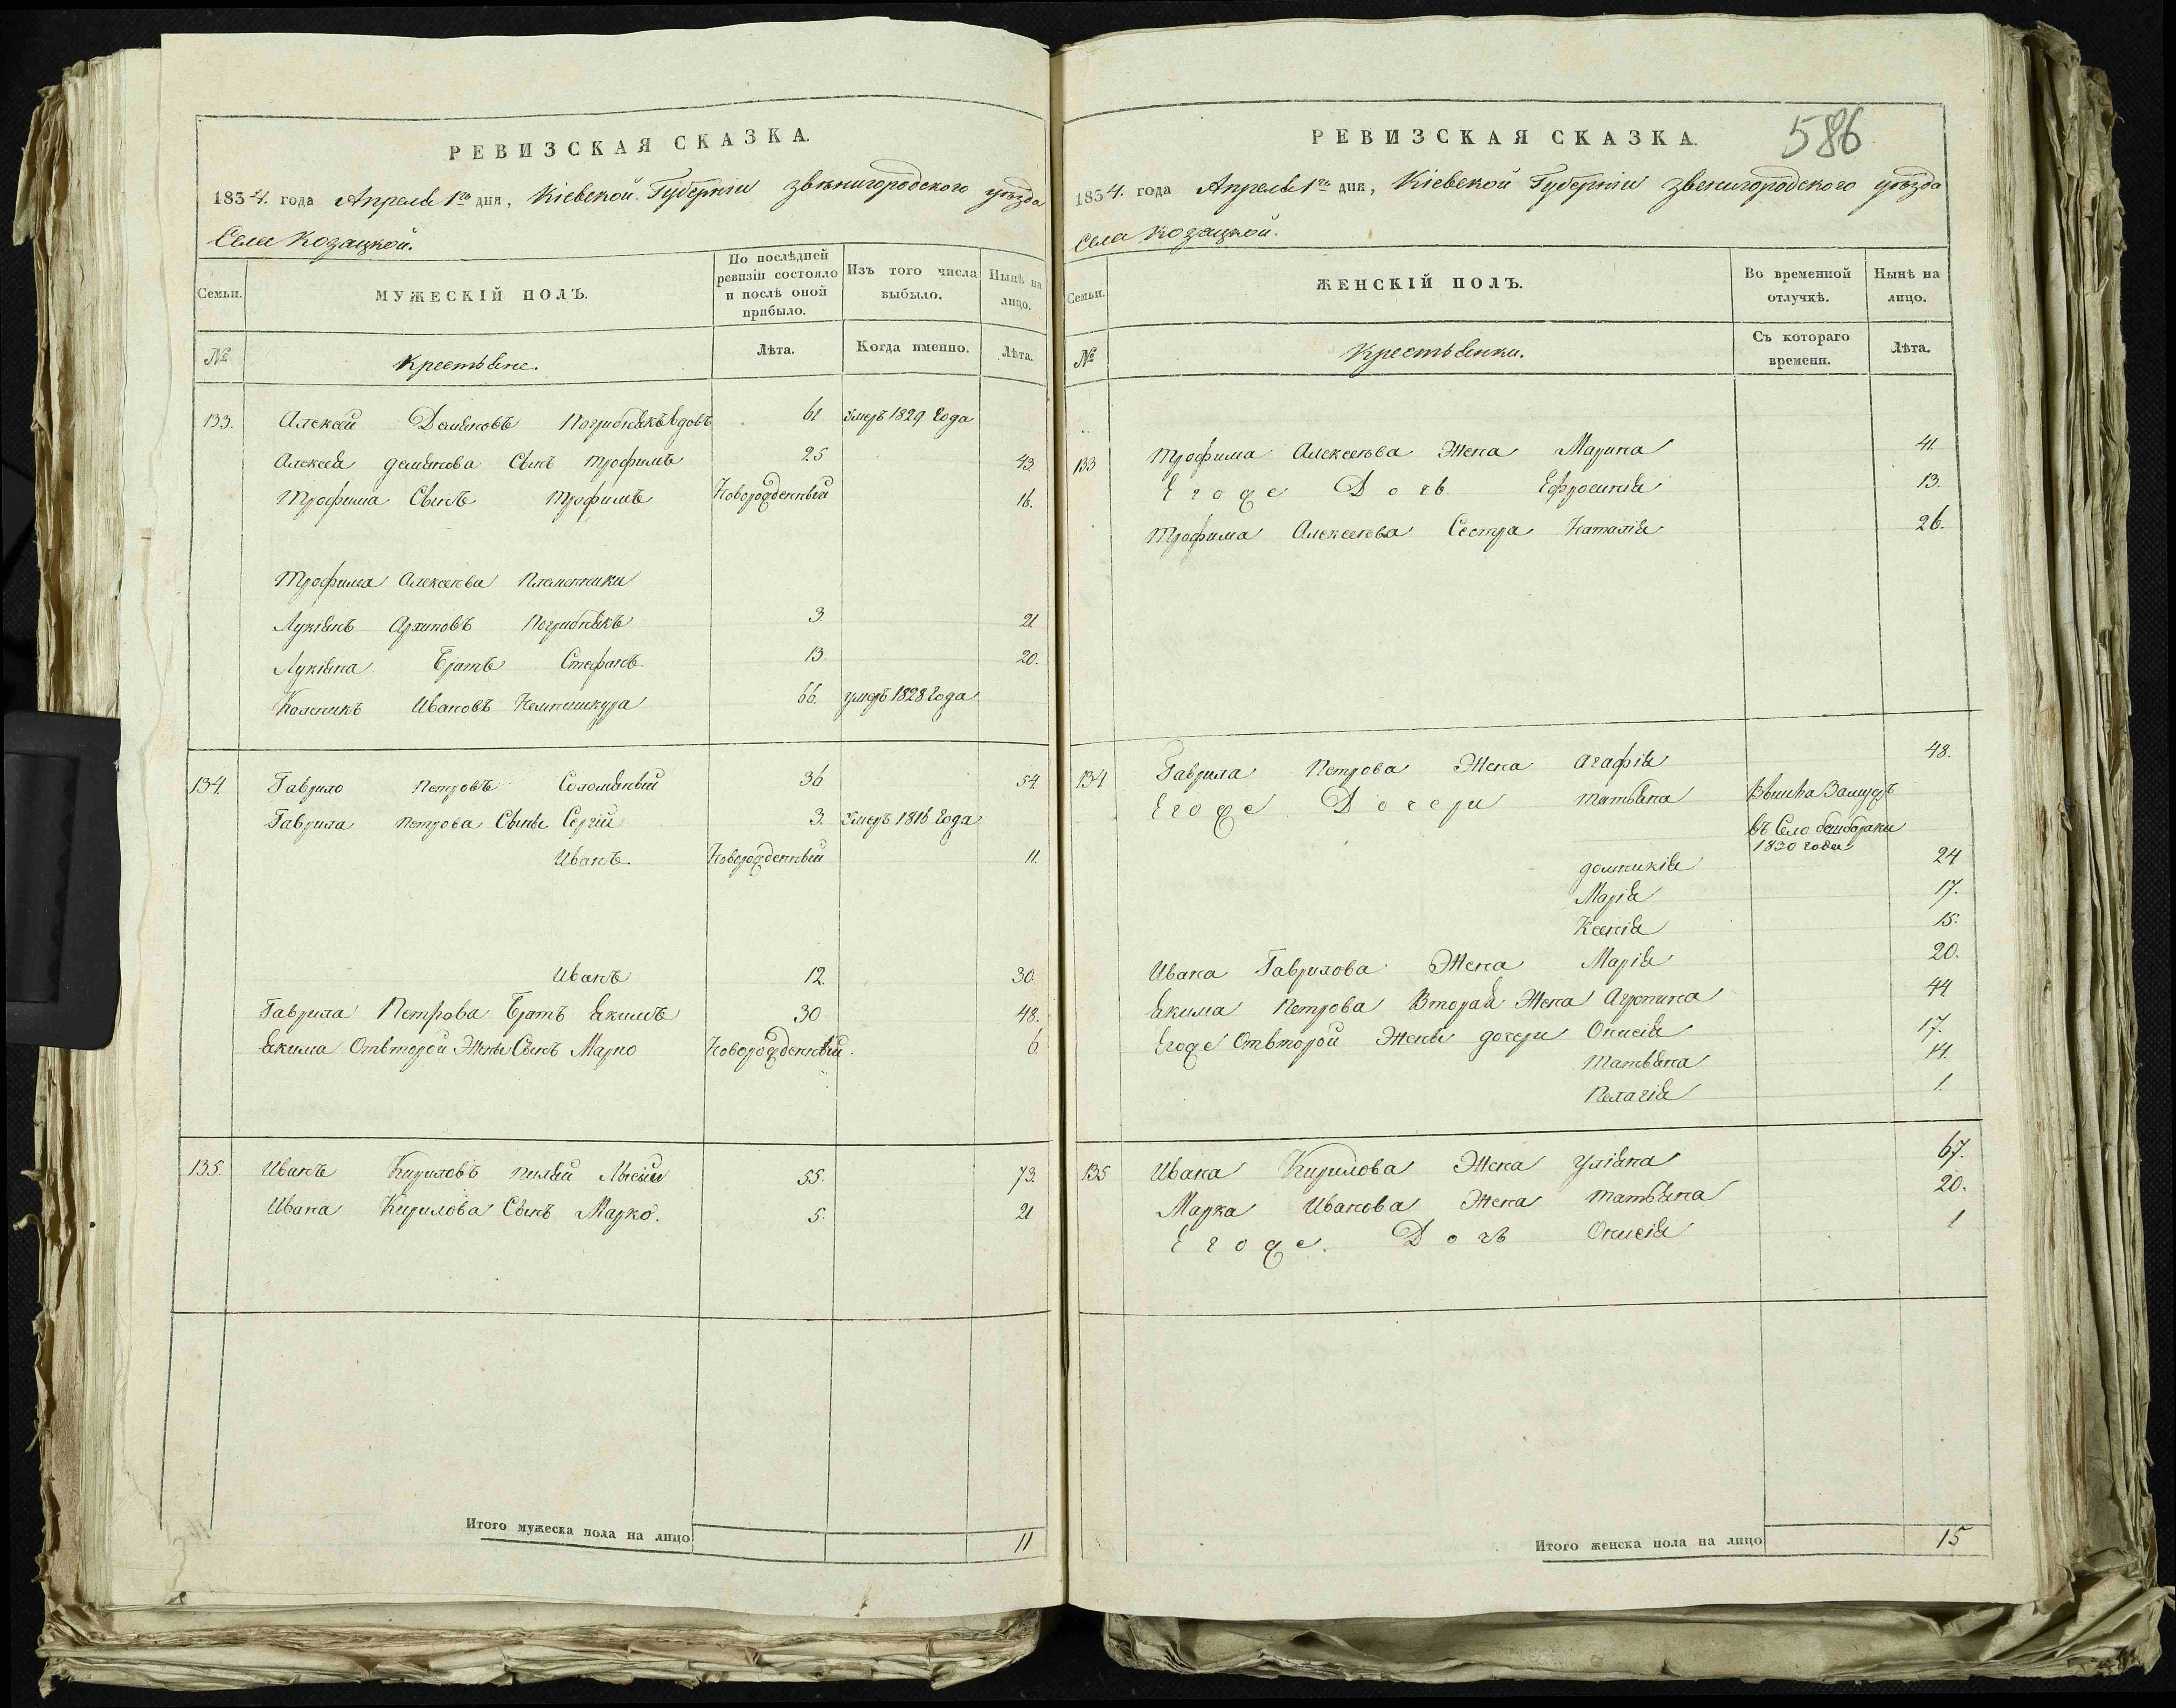 РЕВИЗСКАЯ СКАЗКА.
1834. года Апреля 1го дня, Кіевской Губерніи звѣнигородского уѣзда
Села Козацкой.
Семьи.
МУЖЕСКІЙ ПОЛЪ.
По послѣдней ревизіи состояло и послѣ оной прибыло.
Изъ того числа выбыло.
Нынѣ на лицо.
№
Крестьяне.
Лѣта.
Когда именно.
Лѣта.
133. Алексей Демяновъ Погрибнякъ вдовъ 61 Умеръ 1829 Года
Алексея демянова Сынъ Трофимъ 25 43
Трофима Сынъ Трофимъ Новорожденный 16.
Трофима Алексеева Племенники
Лукіянъ Архиповъ Погрибнякъ 3 21
Лукіяна Братъ Стефанъ 13. 20.
Ивановъ 66. умеръ 1828 Года
134. Гаврило Петровъ Соломяный 36 54.
Гаврила Петрова Сыны Сергій 3. Умеръ 1816 Года
Иванъ. Новорожденный 11.
Иванъ 12. 30.
Гаврила Петрова Братъ Якимъ 30 48.
Якима Отвторой Жены Сынъ Марко Новорожденный. 6.
135. Иванъ Кириловъ 55. 73.
Ивана Кирилова Сынъ Марко. 5. 21
Итого мужеска пола на лицо 11
РЕВИЗСКАЯ СКАЗКА.
586
1834. года Апреля 1го дня, Кіевской Губерніи звенигородского уѣзда
Села Козацкой.
Семьи.
ЖЕНСКІЙ ПОЛЪ.
Во временной отлучкѣ.
Нынѣ на лицо.
№
Крестьянки.
Съ котораго времени.
Лѣта.
133 Трофима Алексеева Жена Марина 41.
Егоже Дочь. Ефросинія 13.
Трофима Алексеева Сестра Наталія 26.
134 Гаврила Петрова Жена Агафія 48.
Егоже Дочери Татьяна Вышла Замужъ
въ Село
1830 года
домникія 24
Марія 17.
Ксенія 15.
Ивана Гаврилова Жена Марія 20.
Якима Петрова Вторая Жена Агрипина 44
Егоже Отвторой Жены дочери Онисія 17.
Татьяна 14.
Пелагія 1.
135 Ивана Кирилова Жена Уліяна 67.
Марка Иванова Жена Татьяна 20.
Егоже. Дочь Онисія 1
Итого женска пола на лицо 15